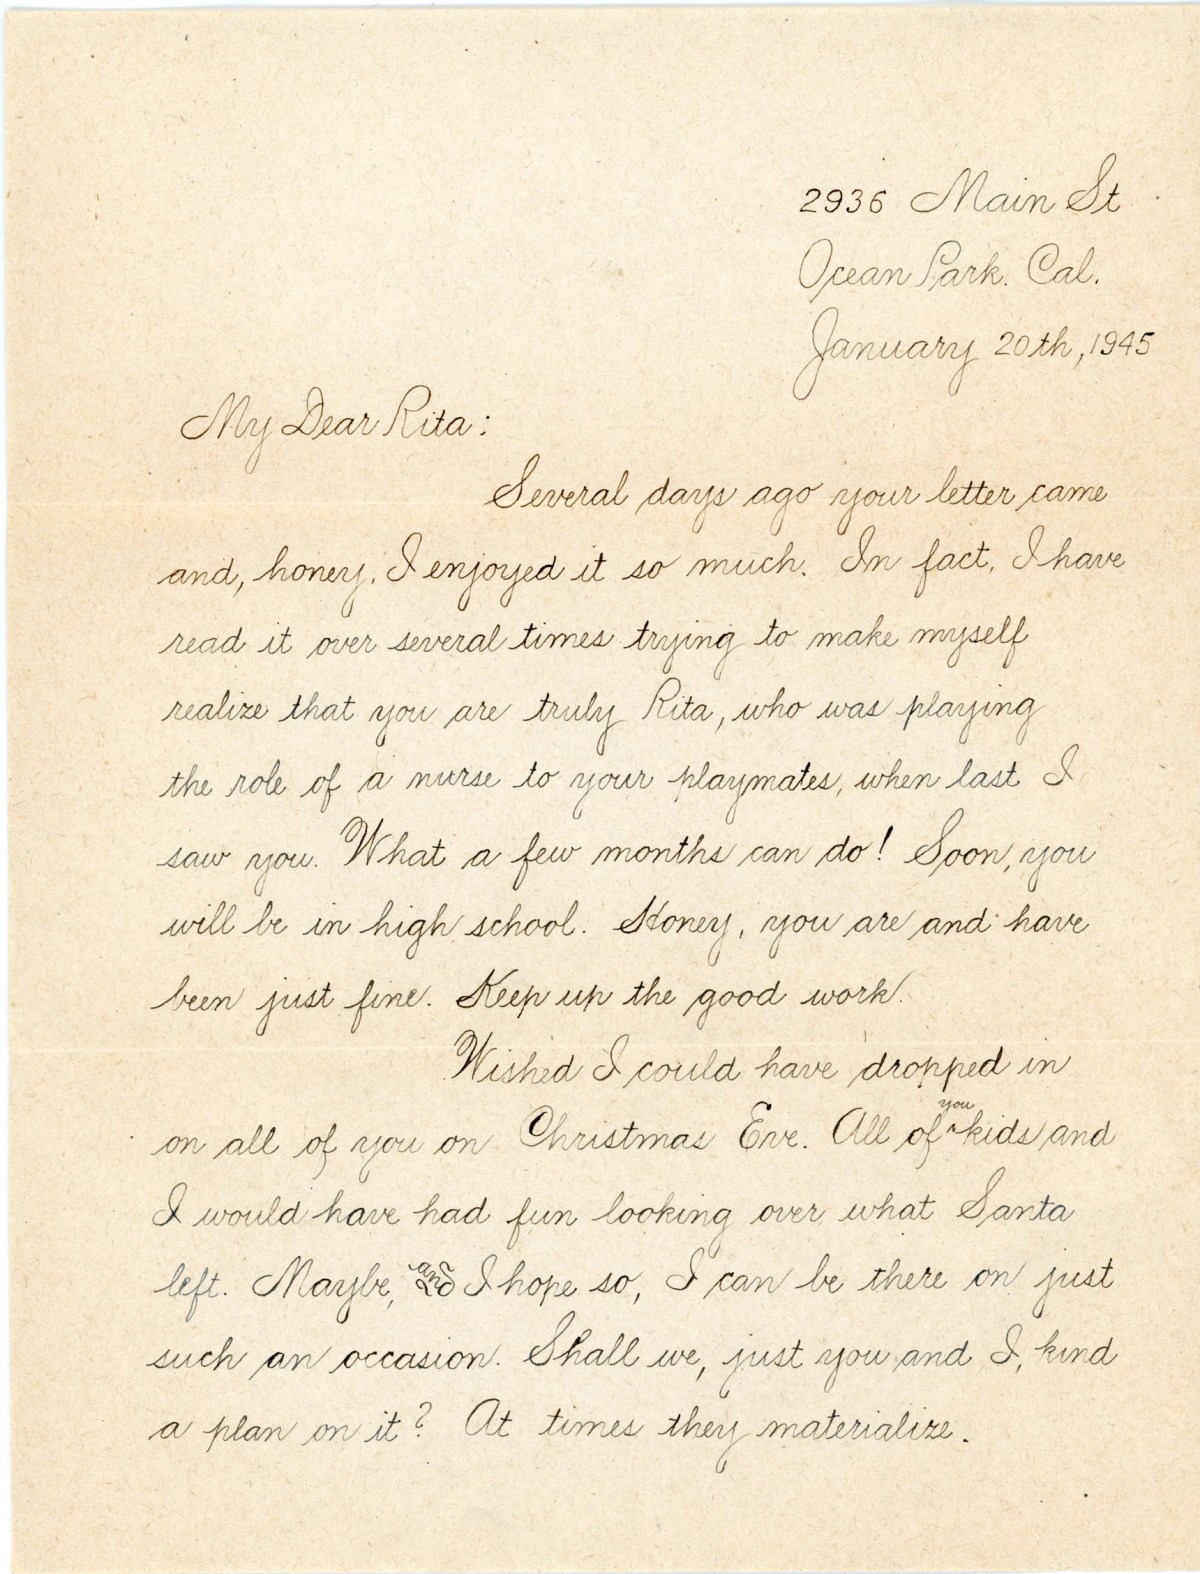 2936 Main St
Ocean Park. Cal.
January 20th, 1945
My Dear Rita:
Several days ago your letter came
and, honey, I enjoyed it so much. In fact, I have
read it over several times trying to make myself
realize that you are truly Rita, who was playing
the role of a nurse to your playmates, when last I
saw you. What a few months can do! Soon, you
will be in high school. Honey, you are and have
been just fine. Keep up the good work.
Wished I could have dropped in
on all of you on Christmas Eve. All of you kids and
I would have had fun looking over what Santa
left. Maybe, and I hope so, I can be there on just
such an occasion. Shall we, just you and I, kind
a plan on it? At times they materialize.